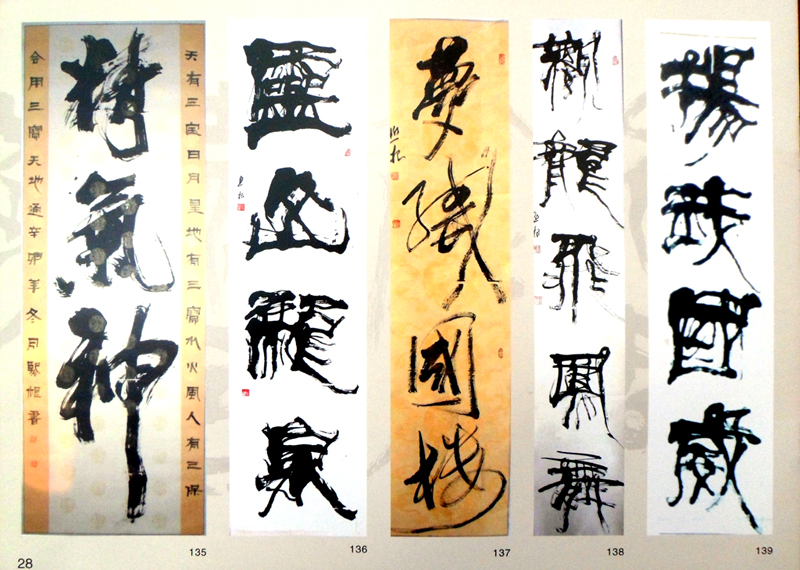 天有三宝日月星地有三寶水火風人有三保
精氣神
会用三寶天地通辛卯年冬月
山龍泉
夢織國
觀龍飛鳳舞
揚我國威
135
136
137
138
139
28